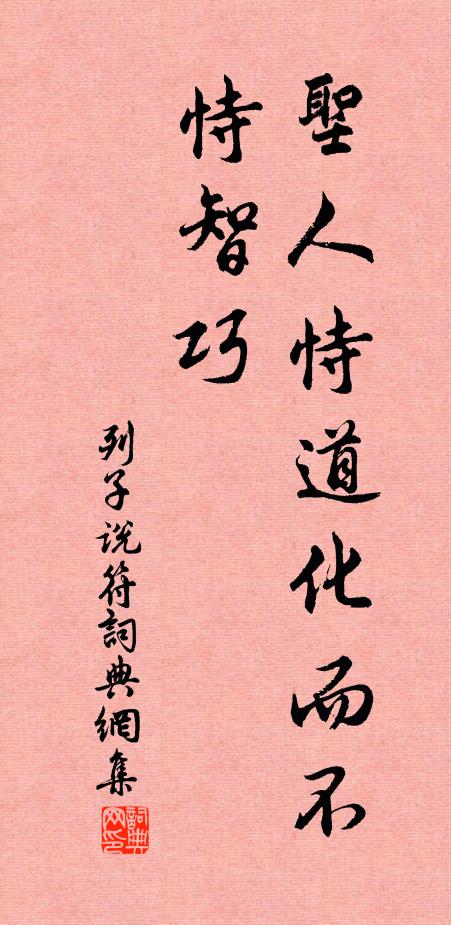 聖人恃道化而不
恃智巧
列子說符詞典網集
詞典
网印